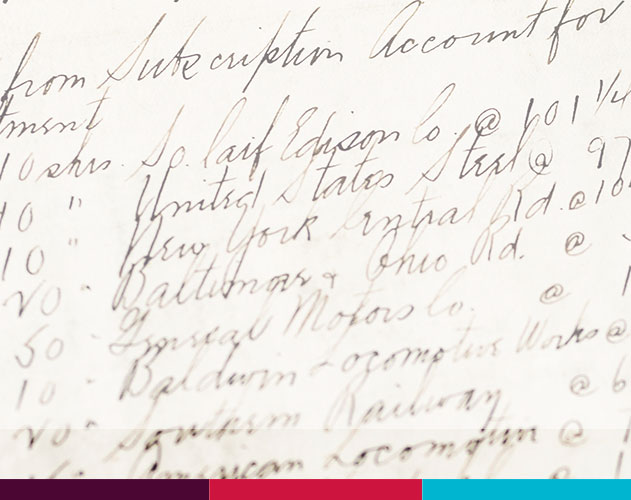 from Subscription Account for
tment
10 shrs. So. Calif Edison Co. @ 101 1/4
10 " United States Steel @ 97
10 " New York Central Rd. @ 10
20 " Baltimore & Ohio Rd. @
50 " General Motors Co. @ 1
10 " Baldwin Locomotive Works @
20 " Southern Railway @ 6
American Locomotive @ 1